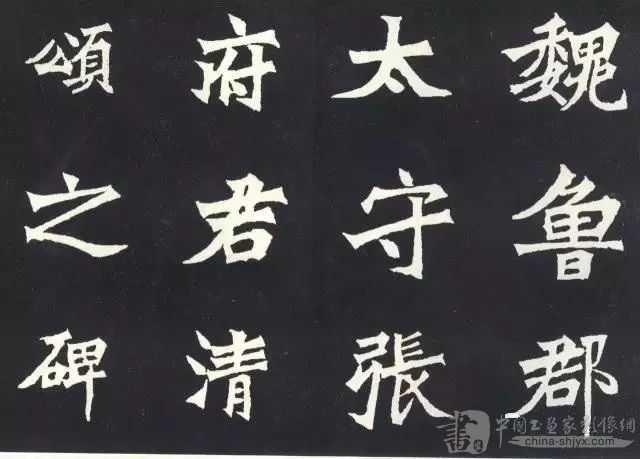 魏魯郡
太守張
府君清
頌之碑
中國书画家影像網
china-shjyx.com